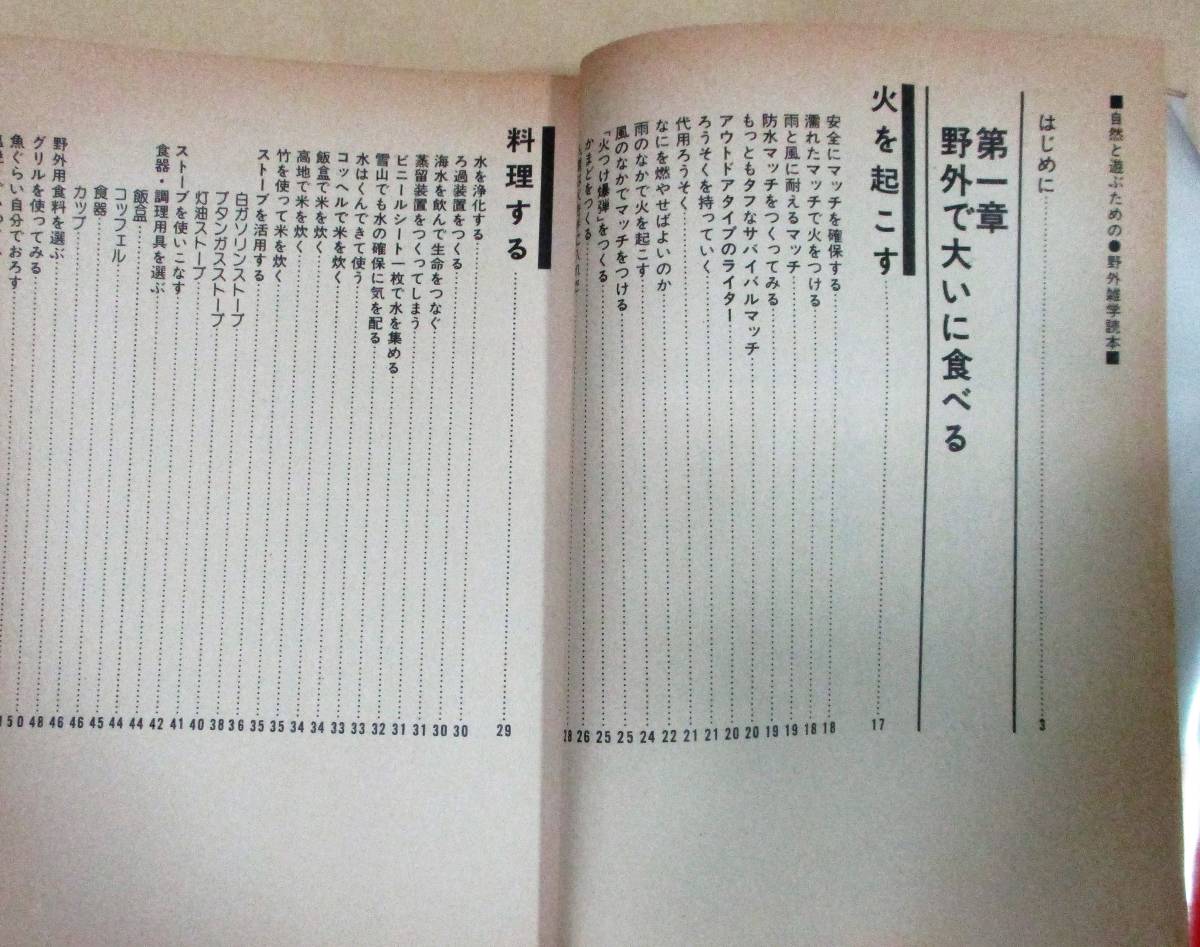 ■自然と遊ぶための●野外雑学読本■
はじめに……3
第一章
野外で大いに食べる
火を起こす……17
安全にマッチを確保する……18
濡れたマッチで火をつける……18
雨と風に耐えるマッチ……19
防水マッチをつくってみる……19
もっともタフなサバイバルマッチ……20
アウトドアタイプのライター……20
ろうそくを持っていく……21
代用ろうそく……21
なにを燃やせばよいのか……22
雨のなかで火を起こす……24
風のなかでマッチをつける……25
「火つけ爆弾」をつくる……25
かまどをつくる……26
28
料理する……29
水を浄化する……30
ろ過装置をつくる……30
海水を飲んで生命をつなぐ……31
蒸留装置をつくってしまう……31
ビニールシート一枚で水を集める……32
雪山でも水の確保に気を配る……33
水はくんできて使う……33
コッヘルで米を炊く……34
飯盒で米を炊く……34
高地で米を炊く……35
竹を使って米を炊く……35
ストーブを活用する……36
白ガソリンストーブ……38
ブタンガスストーブ……40
灯油ストーブ……41
ストーブを使いこなす……42
食器・調理用具を選ぶ……44
飯盒……44
コッフェル……45
食器……46
カップ……46
野外用食料を選ぶ……48
グリルを使ってみる……50
魚ぐらい自分でおろす